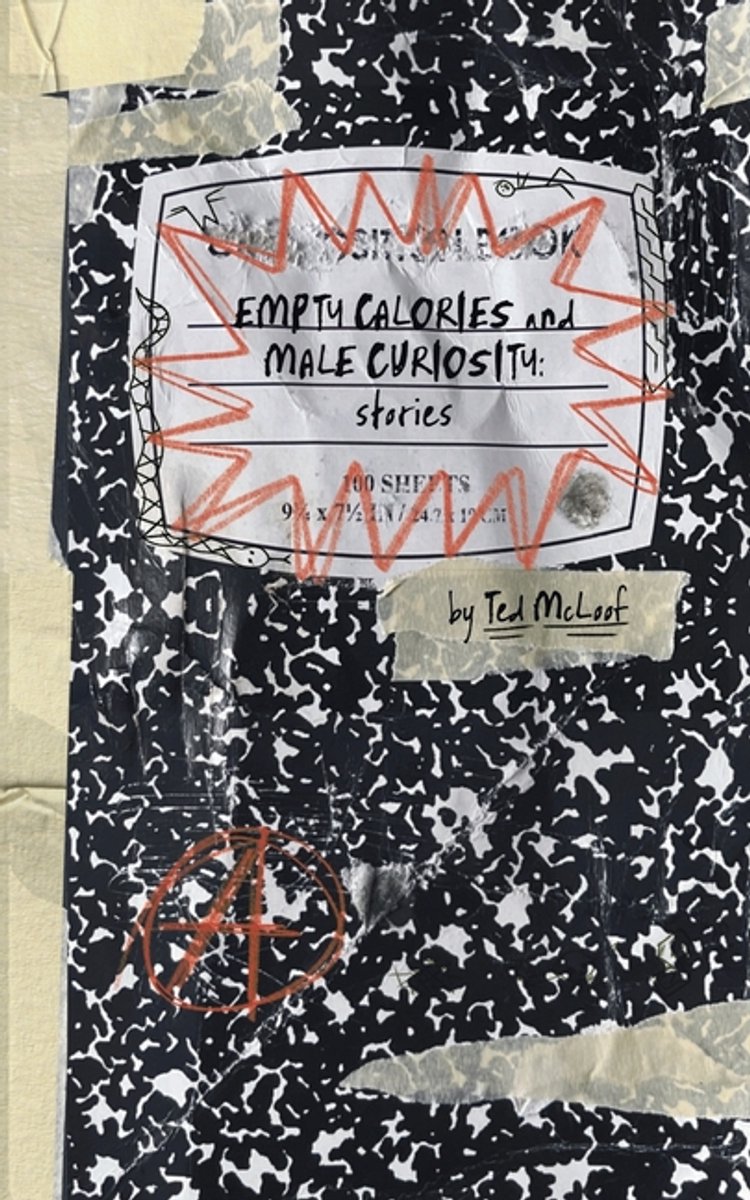 BOOK
EMPTY CALORIES and
MALE CURIOSITY:
stories
100 SHEETS
9¾ x 7½ IN / 24.7 x 19 CM
by Ted McLoof
A